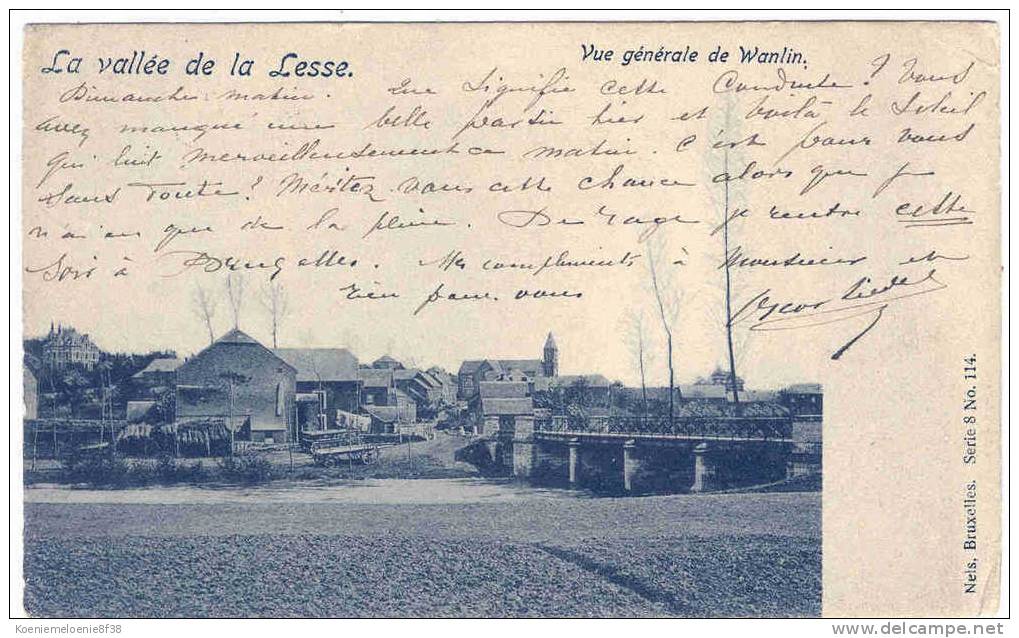 La vallée de la Lesse.
Vue générale de Wanlin.
Dimanche matin. Que signifie cette conduite? Vous
avez manqué une belle partie hier et voilà le Soleil
qui luit merveilleusement ce matin. C'est pour vous
Sans Doute? Méritez vous cette chance alors que je
n'ai eu que de la pluie. De rage je rentre cette
Soir à Bruxelles. Mes compliments à Monsieur et
rien pour vous
Oscar
Nels, Bruxelles. Serie 8 No. 114.
Koeniemeloenie8f38
delcampe.net